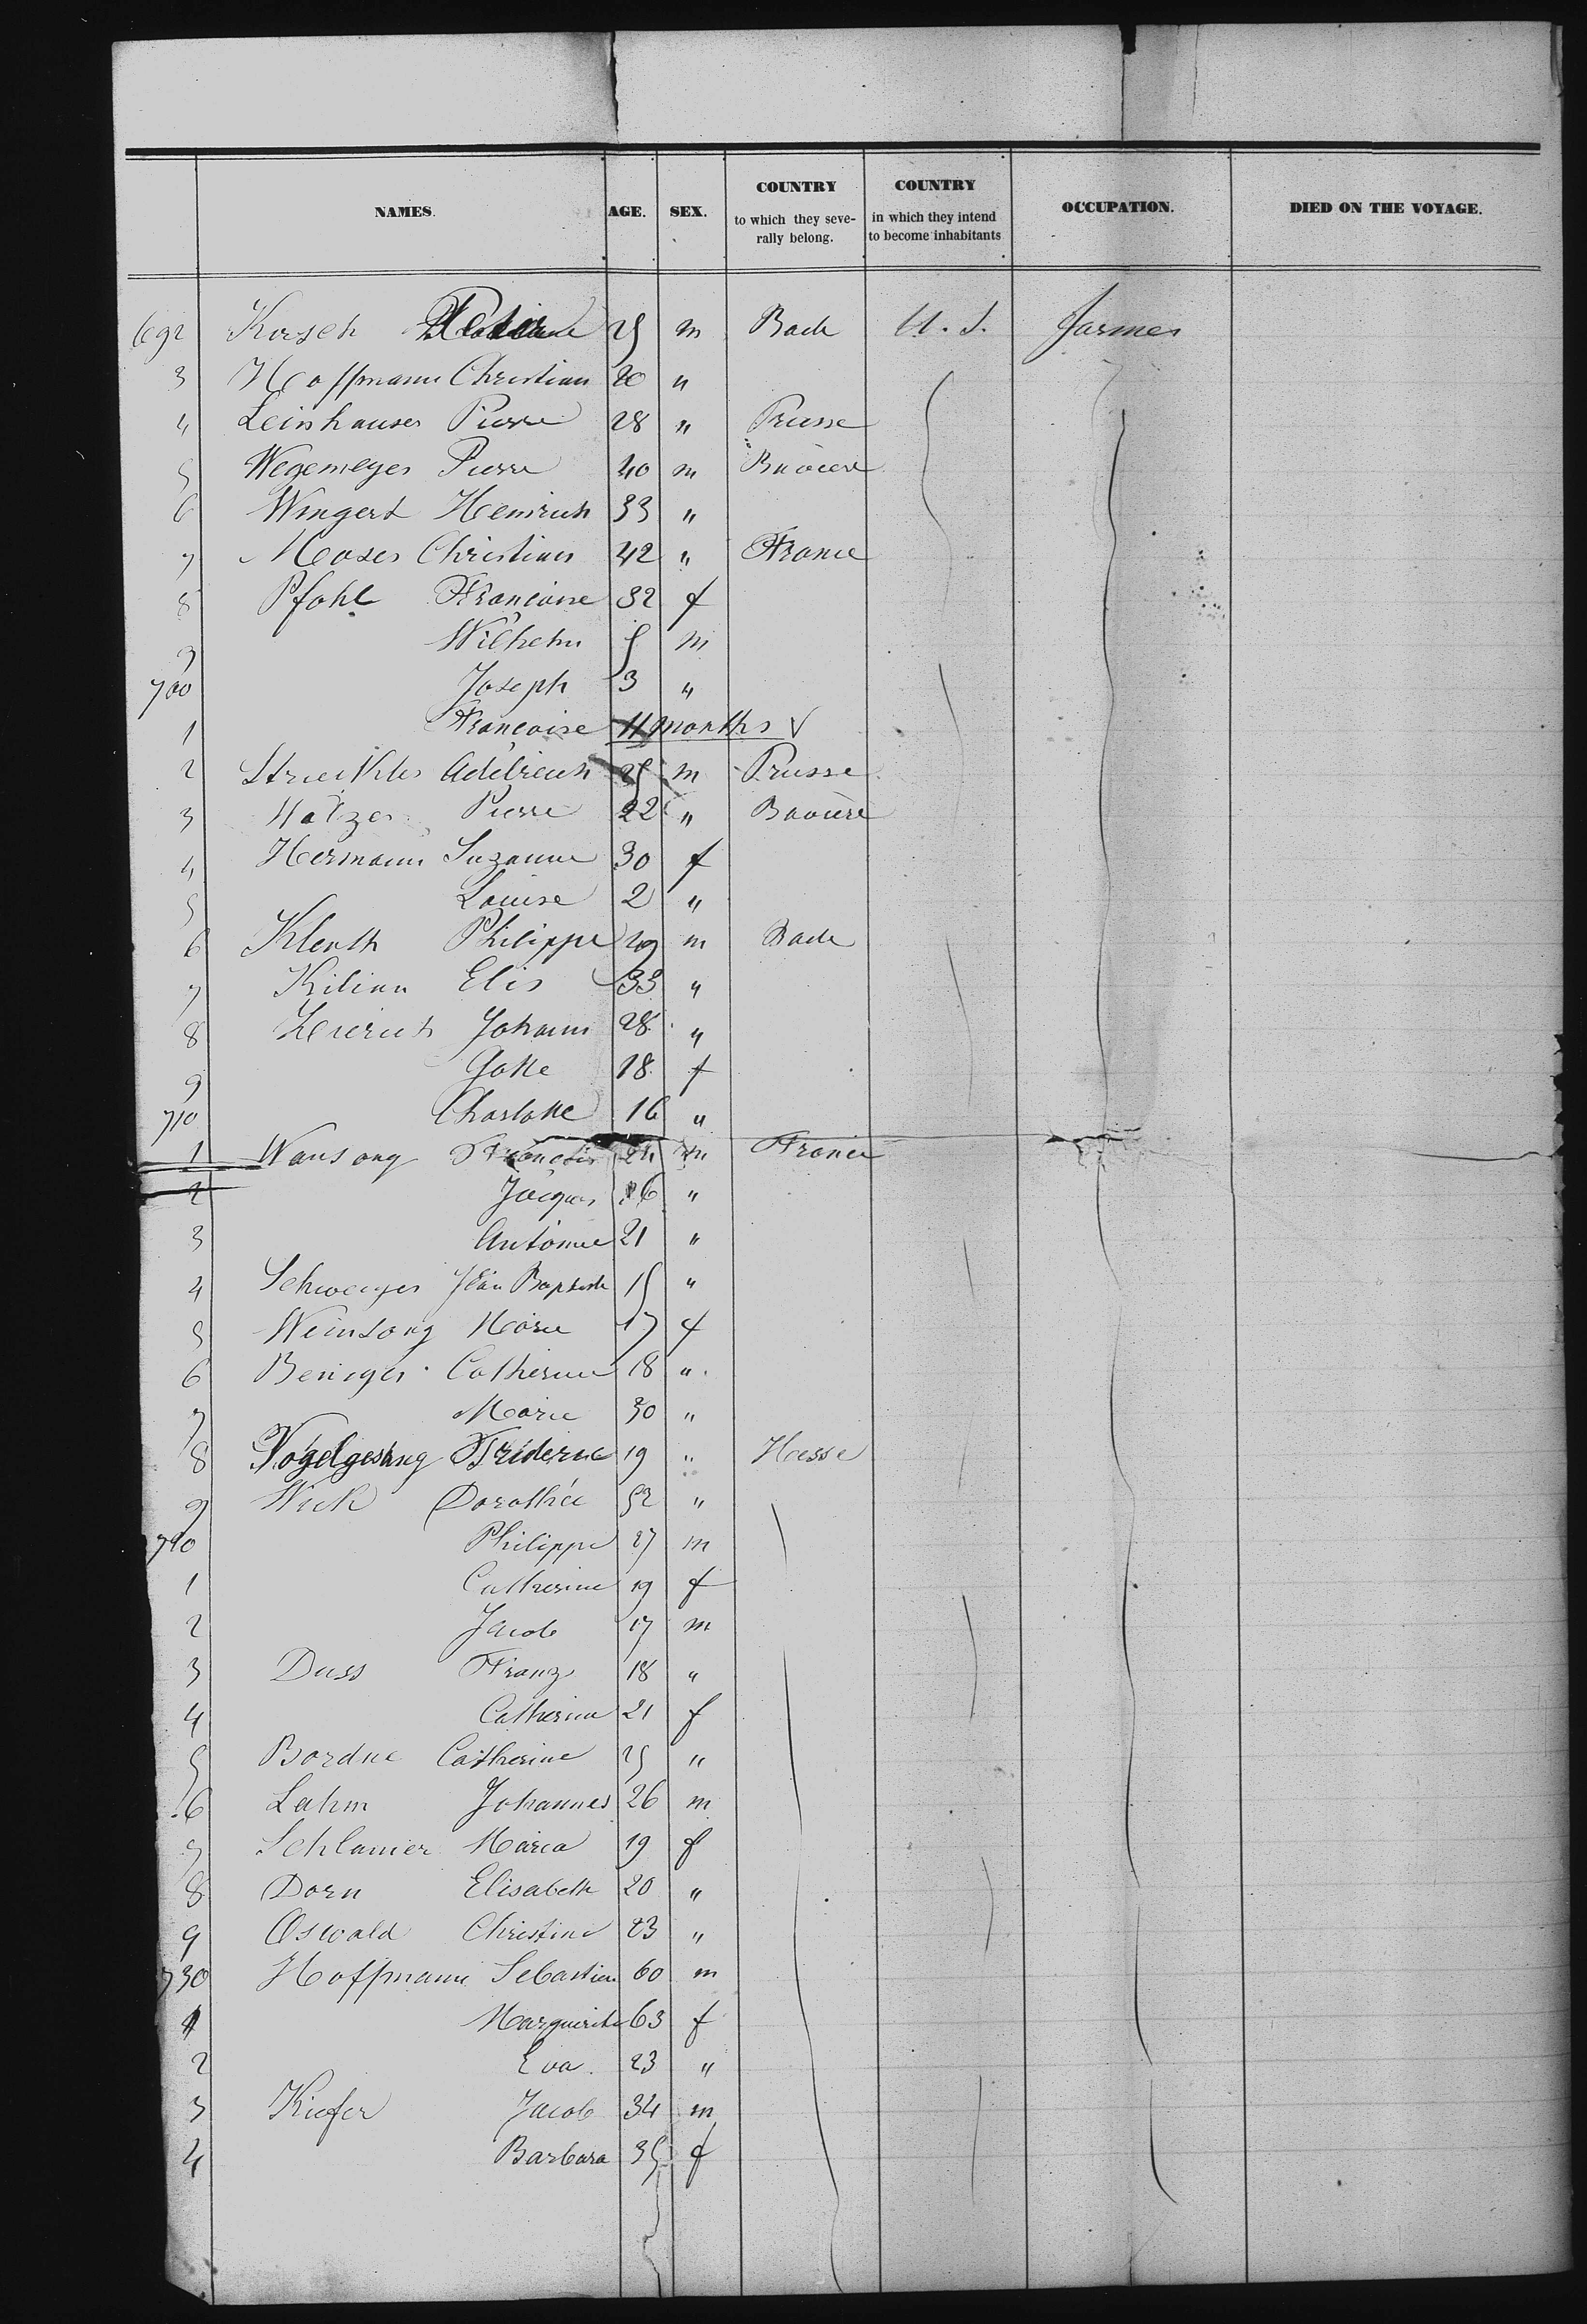 NAMES. AGE. SEX. COUNTRY to which they seve- COUNTRY in which they intend OCCUPATION. DIED ON THE VOYAGE.
rally belong. to become inhabitants
692 Kirsch 25 m Bade U. S. Farmer
3 Hoffmann Christian 20 "
4 Leinhauser Pierre 28 " Prusse
5 Wegemeyer Pierre 40 m Bavière
6 Wingert Heinrich 33 "
7 Moser Christian 42 " France
8 Pfohl Françoise 32 f
9 Wilhelm 5 m
700 Joseph 3 "
1 Françoise 11 months
2 25 m Prusse
3 Pierre 22 " Bavière
4 Hermann Suzanne 30 f
5 Louise 2 "
6 Philippe 29 m Bade
7 Kilian Elis 33 "
8 Johann 28 "
9 18 f
710 Charlotte 16 "
1 Wansang François 24 m France
2 Jacques 26 "
3 Antoine 21 "
4 Jean Baptiste 15 "
5 Weinsang Marie 17 f
6 Beniger Catherine 18 "
7 Marie 30 "
8 Vogelgesang 19 " Hesse
9 Wick Dorothée 52 "
720 Philippe 27 m
1 Catherine 19 f
2 Jacob 17 m
3 Duss Franz 18 "
4 Catherine 21 f
5 Bordne Catherine 25 "
6 Lahm Johannes 26 m
7 Schlamer Maria 19 f
8 Dorn Elisabeth 20 "
9 Oswald Christine 23 "
730 Hoffmann Sebastien 60 m
1 Marguerite 63 f
2 Eva 23 "
3 Kiefer Jacob 34 m
4 Barbara 35 f